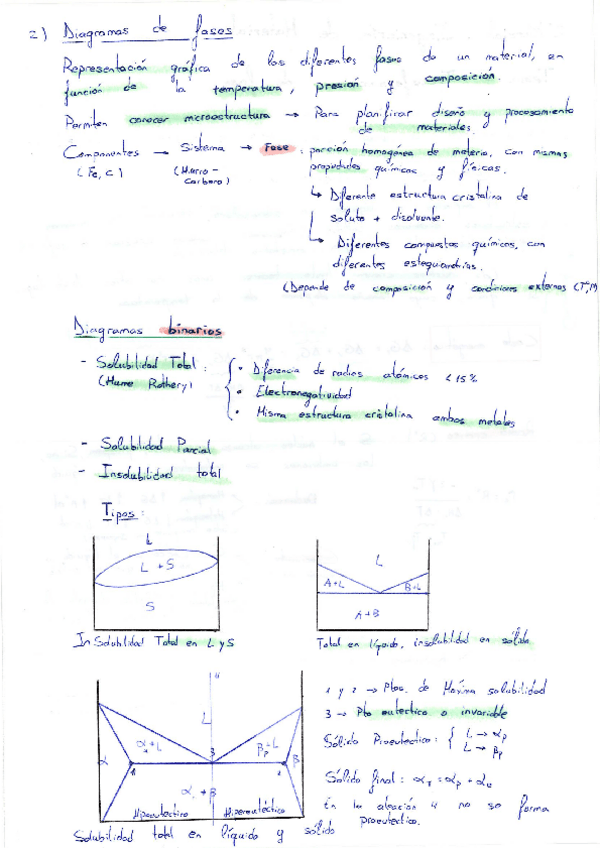 2) Diagramas de fases
Representación gráfica de las diferentes fases de un material, en
función de la temperatura, presión y composición.
Permiten conocer microestructura → Para planificar diseño y procesamiento
de materiales.
Componentes → Sistema → Fase : porción homogénea de materia, con mismas
(Fe, C) (Hierro - propiedades químicas y físicas.
Carbono)
↳ Diferente estructura cristalina de
soluto + disolvente.
↳ Diferentes compuestos químicos, con
diferentes estequiometrías.
(Depende de composición y condiciones externas (Tª,P)
Diagramas binarios
- Solubilidad Total : • Diferencia de radios atómicos < 15%
(Hume Rothery) • Electronegatividad
• Misma estructura cristalina ambos metales
- Solubilidad Parcial
- Insolubilidad total
Tipos:
L
L + S
S
In Solubilidad Total en L y S
L
A+L B+L
A+B
Total en líquido, insolubilidad en sólido
4
L
α+L 3 β+L
α 1 2 β
α + β
Hipoeutéctico Hipereutéctico
Solubilidad total en líquido y sólido
1 y 2 → Ptos. de Máxima solubilidad
3 → Pto eutectico o invariable
Sólido Proeutectico: { L → αp
L → βp
Sólido final: αT = αp + αe
En la aleación 4 no se forma
proeutectico.